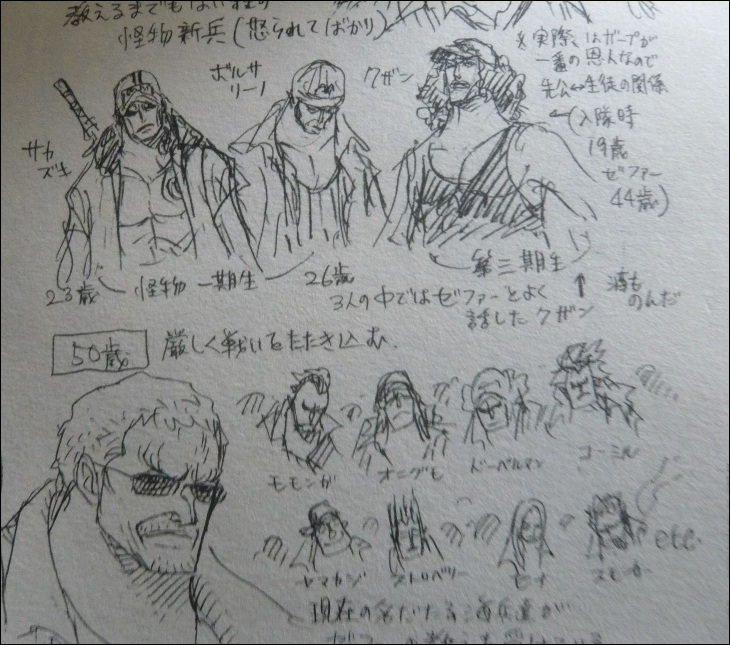 教えるまでもない程の
怪物新兵(怒られてばかり)
※実際はガープが
一番の恩人なので
先公↔生徒の関係
←(入隊時
19歳
ゼファー
44歳)
サカ
ズキ
ボルサ
リーノ
クザン
23歳
怪物一期生
26歳
第三期生
3人の中ではゼファーとよく
話したクザン
↑
酒も
のんだ
50歳
厳しく戦いをたたき込む。
モモンガ
オニグモ
ドーベルマン
コーミル
ヤマカジ
ストロベリー
ヒナ
スモーカー
etc.
現在の名だたる海兵達が